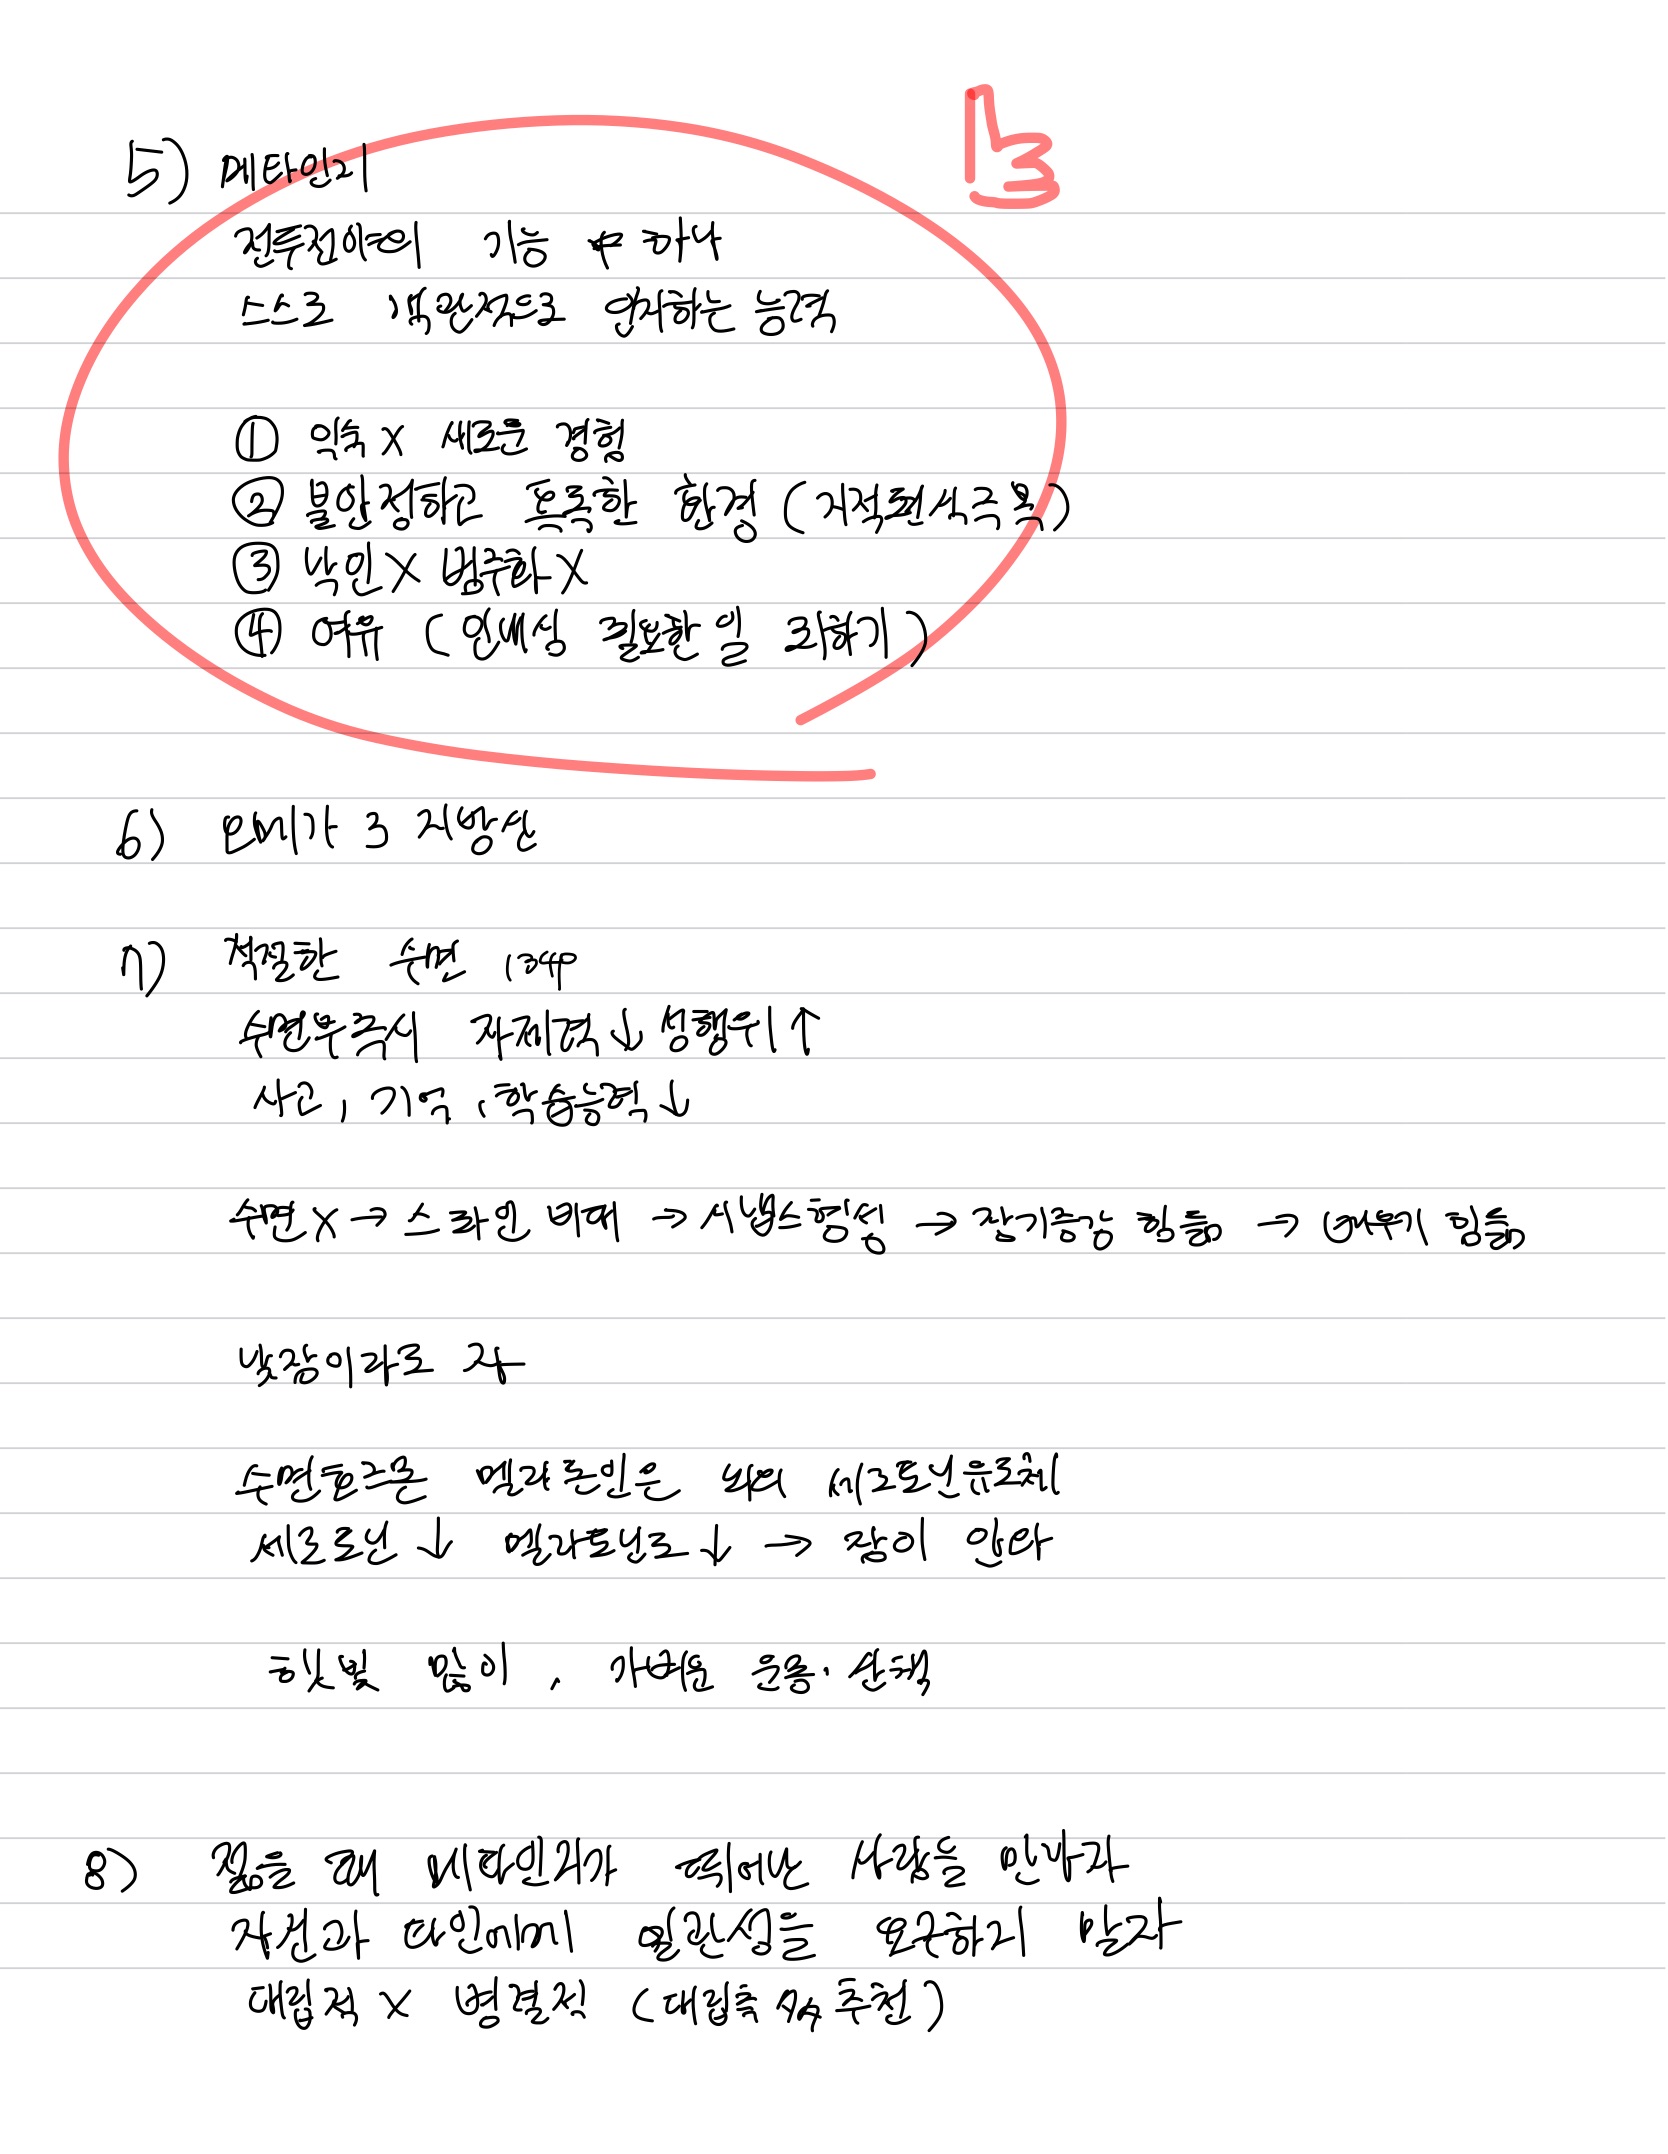 5) 메타인지
전두전야의 기능 中 하나
스스로 객관적으로 인지하는 능력
① 익숙X 새로운 경험
② 불안정하고 독특한 환경 (지적현식극복)
③ 낙인X 범주화X
④ 여유 (인내심 필요한 일 피하기)
6) 오메가 3 지방산
7) 적절한 수면 134p
수면부족시 자제력↓ 성행위↑
사고, 기억, 학습능력↓
수면X → 스파인 비대 → 시냅스형성 → 장기증강 힘듦 → 배우기 힘듦
낮잠이라도 자
수면호르몬 멜라톤인은 뇌의 세로토닌유도체
세로토닌↓ 멜라토닌도↓ → 잠이 안와
햇빛 많이, 가벼운 운동·산책
8) 젊을 때 메타인지가 뛰어난 사람들 만나자
자신과 타인에게 일관성을 요구하지 말자
대립적X 병렬적 (대립축 추천)